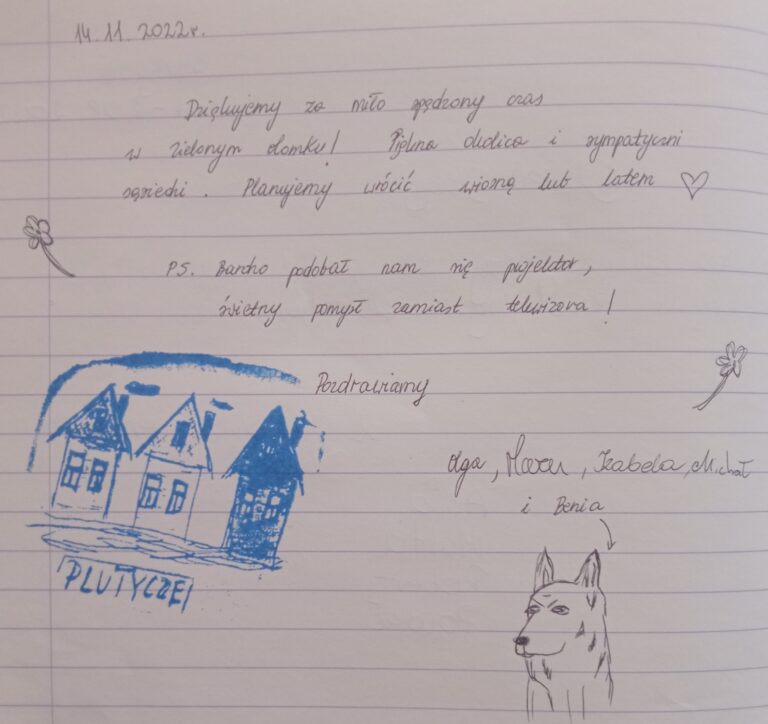 14.11.2022r.
Dziękujemy za miło spędzony czas
w zielonym domku! Piękna okolica i sympatyczni
sąsiedzi. Planujemy wrócić wiosną lub latem ♡
PS. Bardzo podobał nam się projektor,
świetny pomysł zamiast telewizora!
Pozdrawiamy
Olga, Izabela, Michał
i Benia
PLUTYCZE